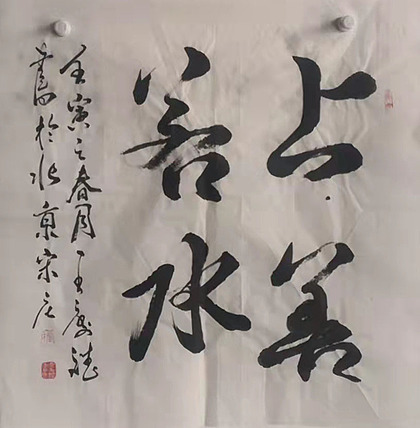 上善
若水
壬寅之春月王
書於北京宋庄